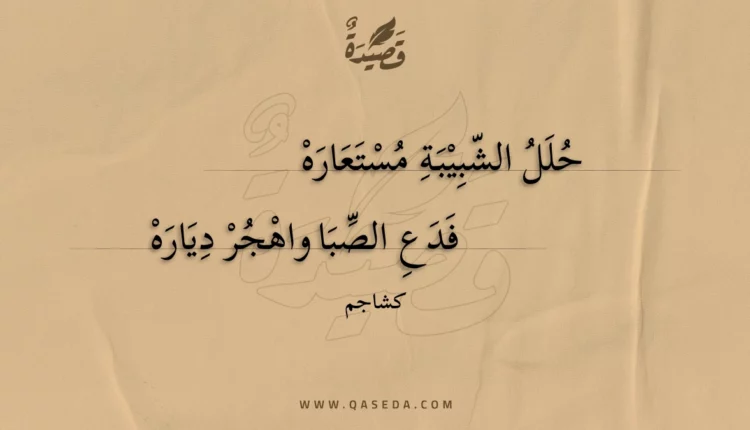 قَصِيْدَةٌ
حُلَلُ الشَّبِيْبَةِ مُسْتَعَارَهْ
فَدَعِ الصِّبَا واهْجُرْ دِيَارَهْ
كشاجم
WWW.QASEDA.COM